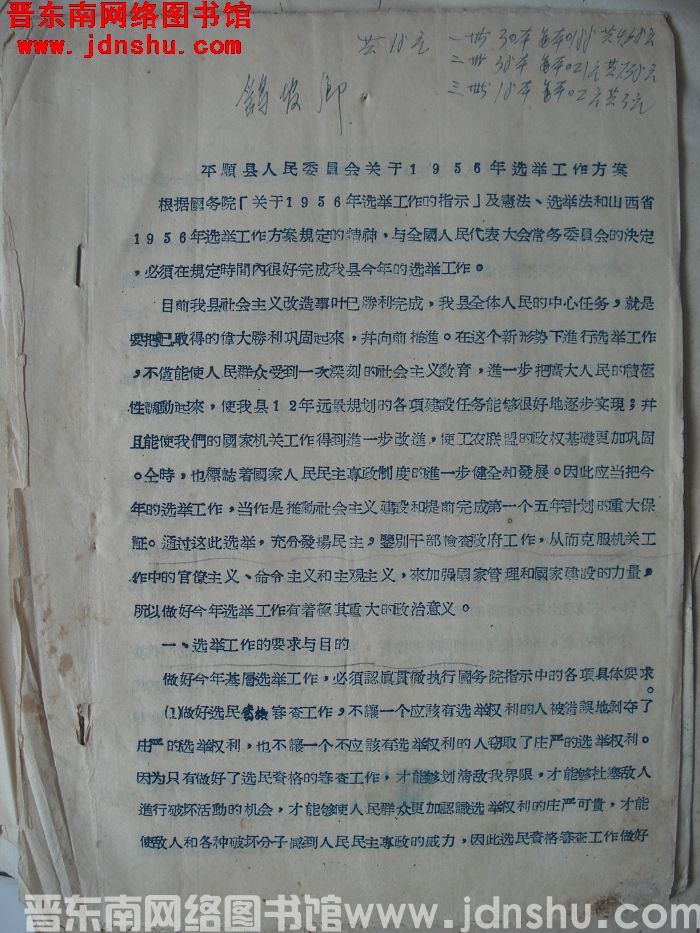 晋东南网络图书馆
www.jdnshu.com
共18元
一卅 30本 每本0.188 共4.68元
二卅 38本 每本0.21元 共7.58元
三卅 18本 每本0.2元 共3元
卿
平順县人民委員会关于1956年选举工作方案
根据國务院「关于1956年选举工作的指示」及憲法、选举法和山西省
1956年选举工作方案規定的精神，与全國人民代表大会常务委員会的决定
，必須在規定時間內很好完成我县今年的选举工作。
目前我县社会主义改造事叶已勝利完成，我县全体人民的中心任务，就是
要把已取得的偉大勝利巩固起來，幷向前推進。在这个新形势下進行选举工作
，不僅能使人民群众受到一次深刻的社会主义敎育，進一步把廣大人民的積極
性調動起來，使我县12年远景規划的各項建設任务能够很好地逐步实現；幷
且能使我們的國家机关工作得到進一步改進，使工农联盟的政权基礎更加巩固
。仝時，也標誌着國家人民民主專政制度的進一步健全和發展。因此应当把今
年的选举工作，当作是推動社会主义建設和提前完成第一个五年計划的重大保
証。通过这此选举，充分發揚民主，鑒別干部檢查政府工作，从而克服机关工
作中的官僚主义、命令主义和主观主义，來加强國家管理和國家建設的力量，
所以做好今年选举工作有着極其重大的政治意义。
一、选举工作的要求与目的
做好今年基層选举工作，必須認眞貫徹执行國务院指示中的各項具体要求。
(1)做好选民資格審查工作，不讓一个应該有选举权利的人被錯誤地剝夺了
庄严的选举权利，也不讓一个不应該有选举权利的人窃取了庄严的选举权利。
因为只有做好了选民資格的審查工作，才能够划清敌我界限，才能够杜塞敌人
進行破坏活動的机会，才能够使人民群众更加認識选举权利的庄严可貴，才能
使敌人和各种破坏分子感到人民民主專政的威力，因此选民資格審查工作做好
晋东南网络图书馆www.jdnshu.com